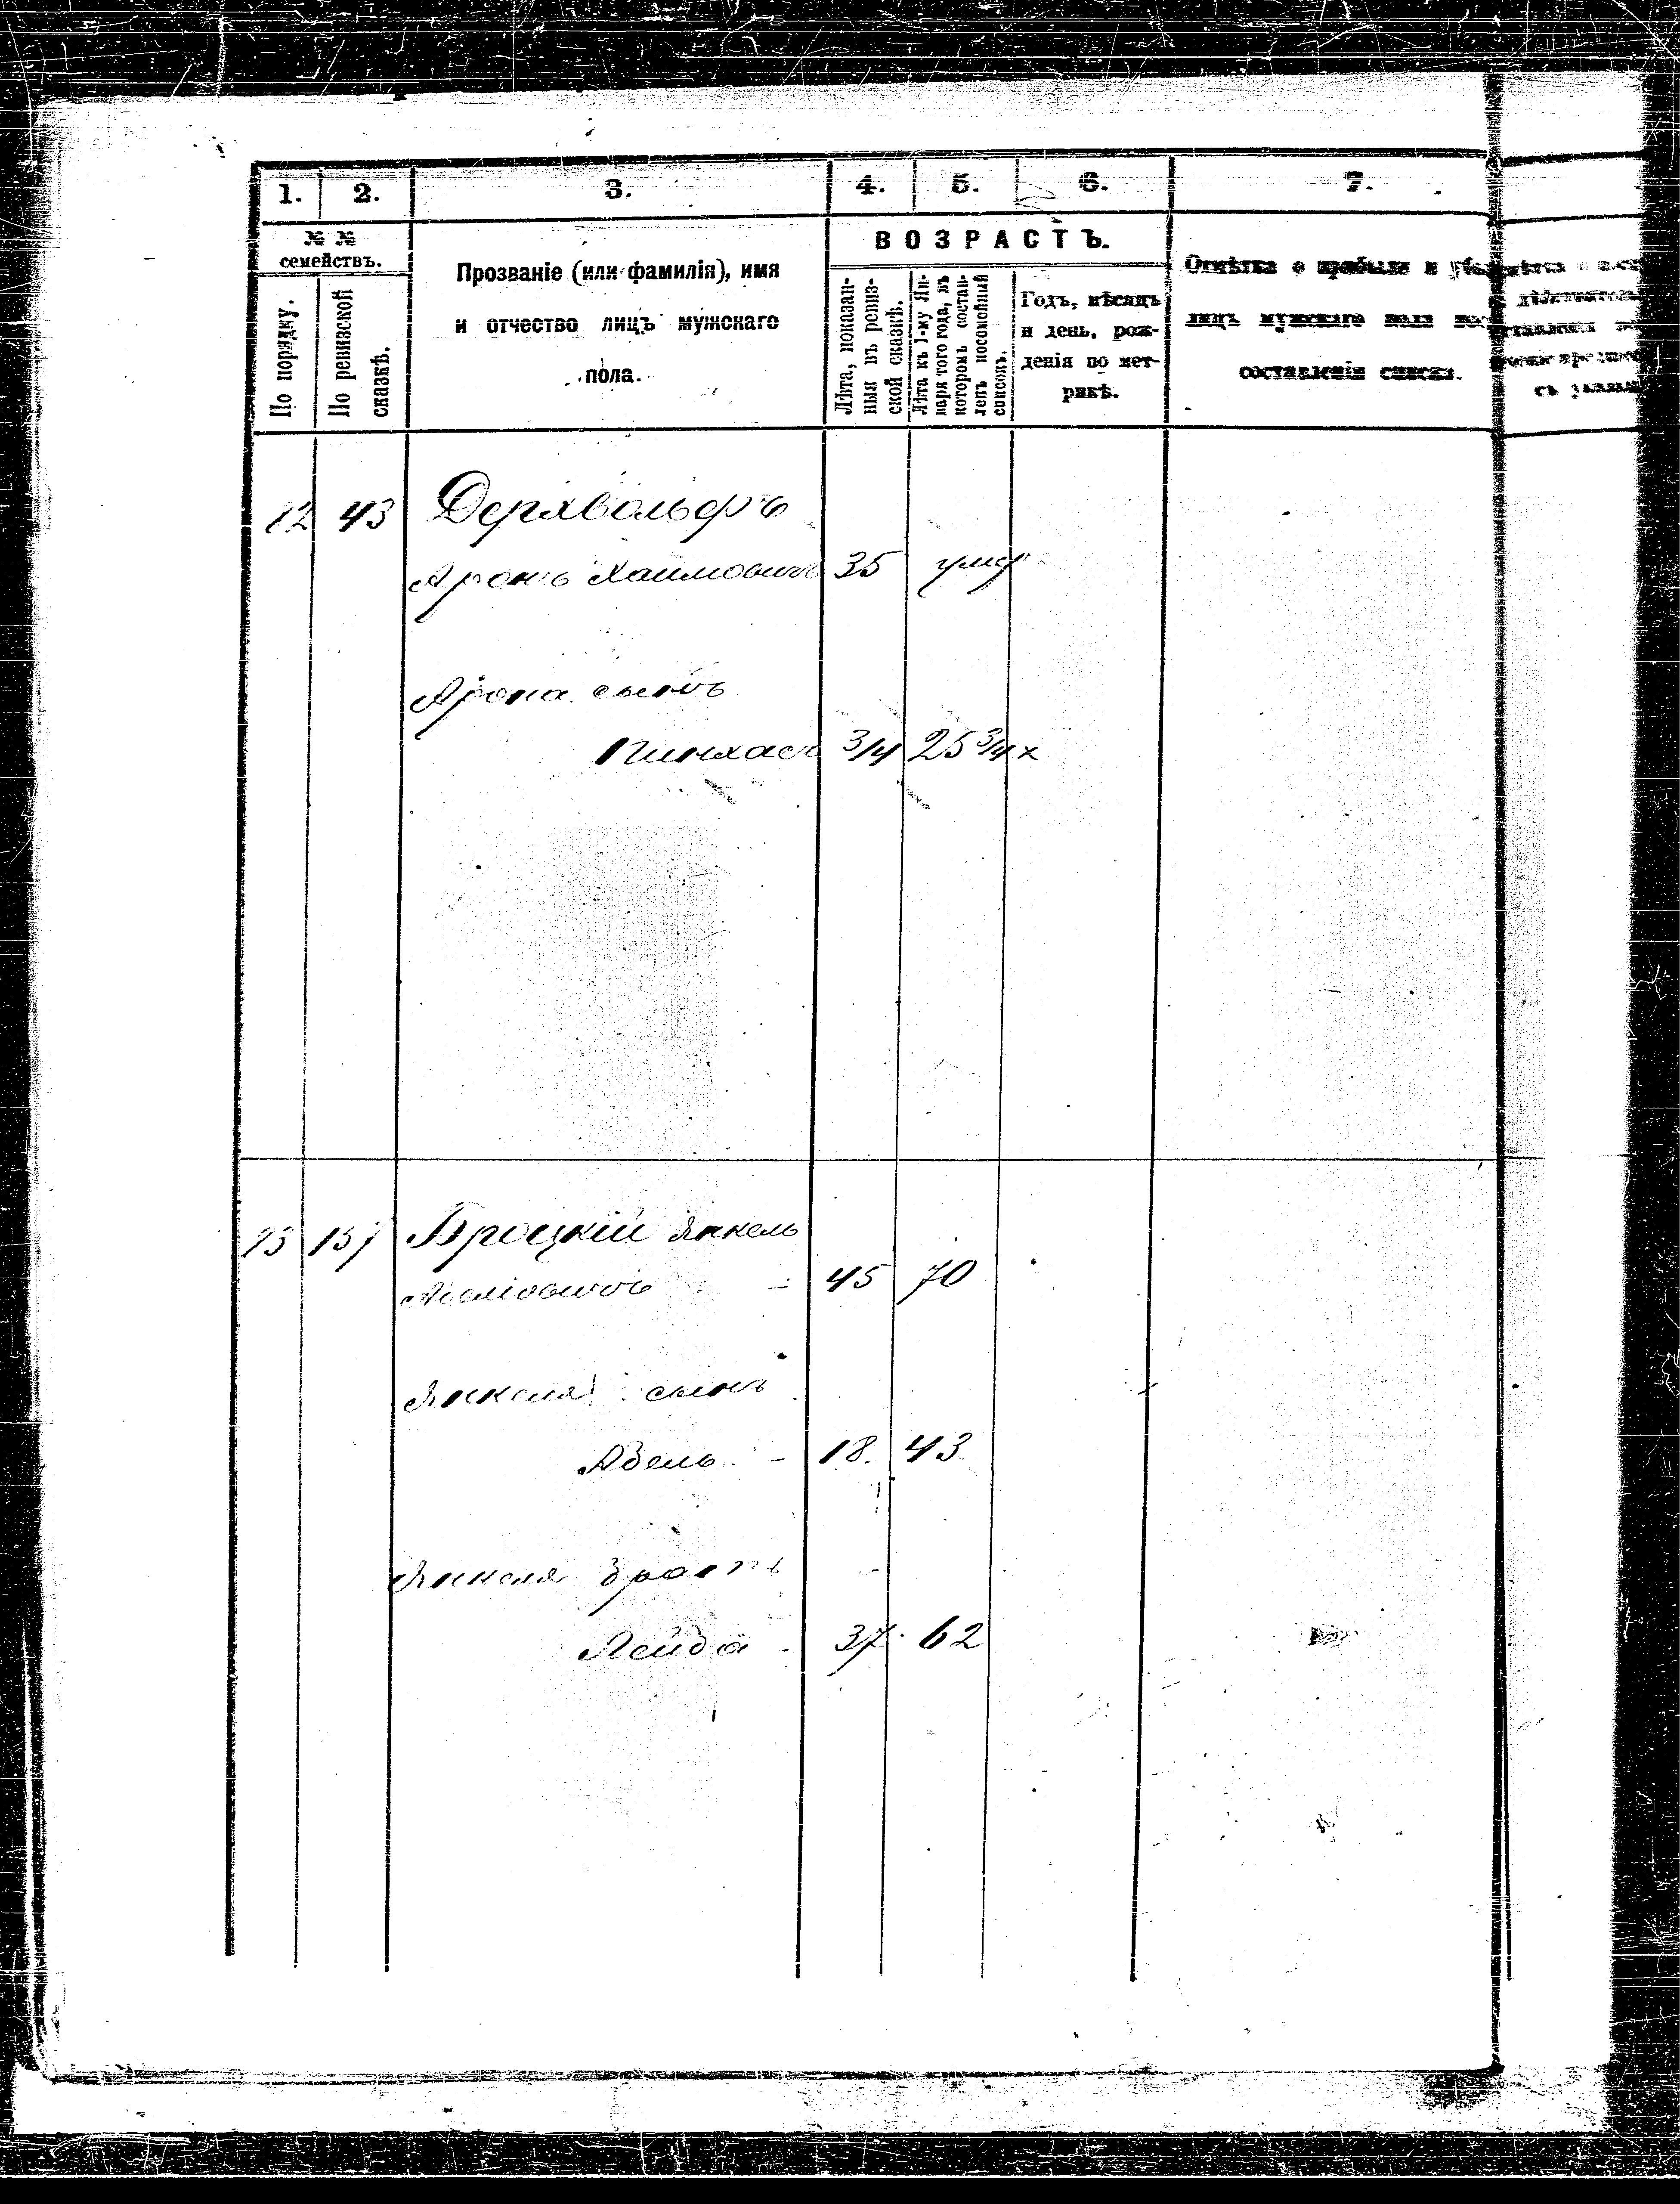 1. 2. 3. 4. 5. 6. 7.
№ №
семействъ.
По порядку.
По ревизской
сказкѣ.
Прозваніе (или фамилія), имя
и отчество лицъ мужскаго
пола.
ВОЗРАСТЪ.
Лѣта, показан-
ныя въ ревиз-
ской сказкѣ.
Лѣта къ 1-му Ян-
варя того года, въ
которомъ состав-
ленъ посемейный
списокъ.
Годъ, мѣсяцъ
и день, рож-
денія по мет-
рикѣ.
Отмѣтка о прибыли и
лицъ мужскаго пола
составленія списка.
12 43
Аронъ Хаимовичъ 35
Арона сынъ
Пинхасъ 3/4 25 3/4 х
13 Броцкій Янкель
45 70
Янкеля сынъ
Абель - 18. 43
Янкеля братъ
Лейба - 37. 62